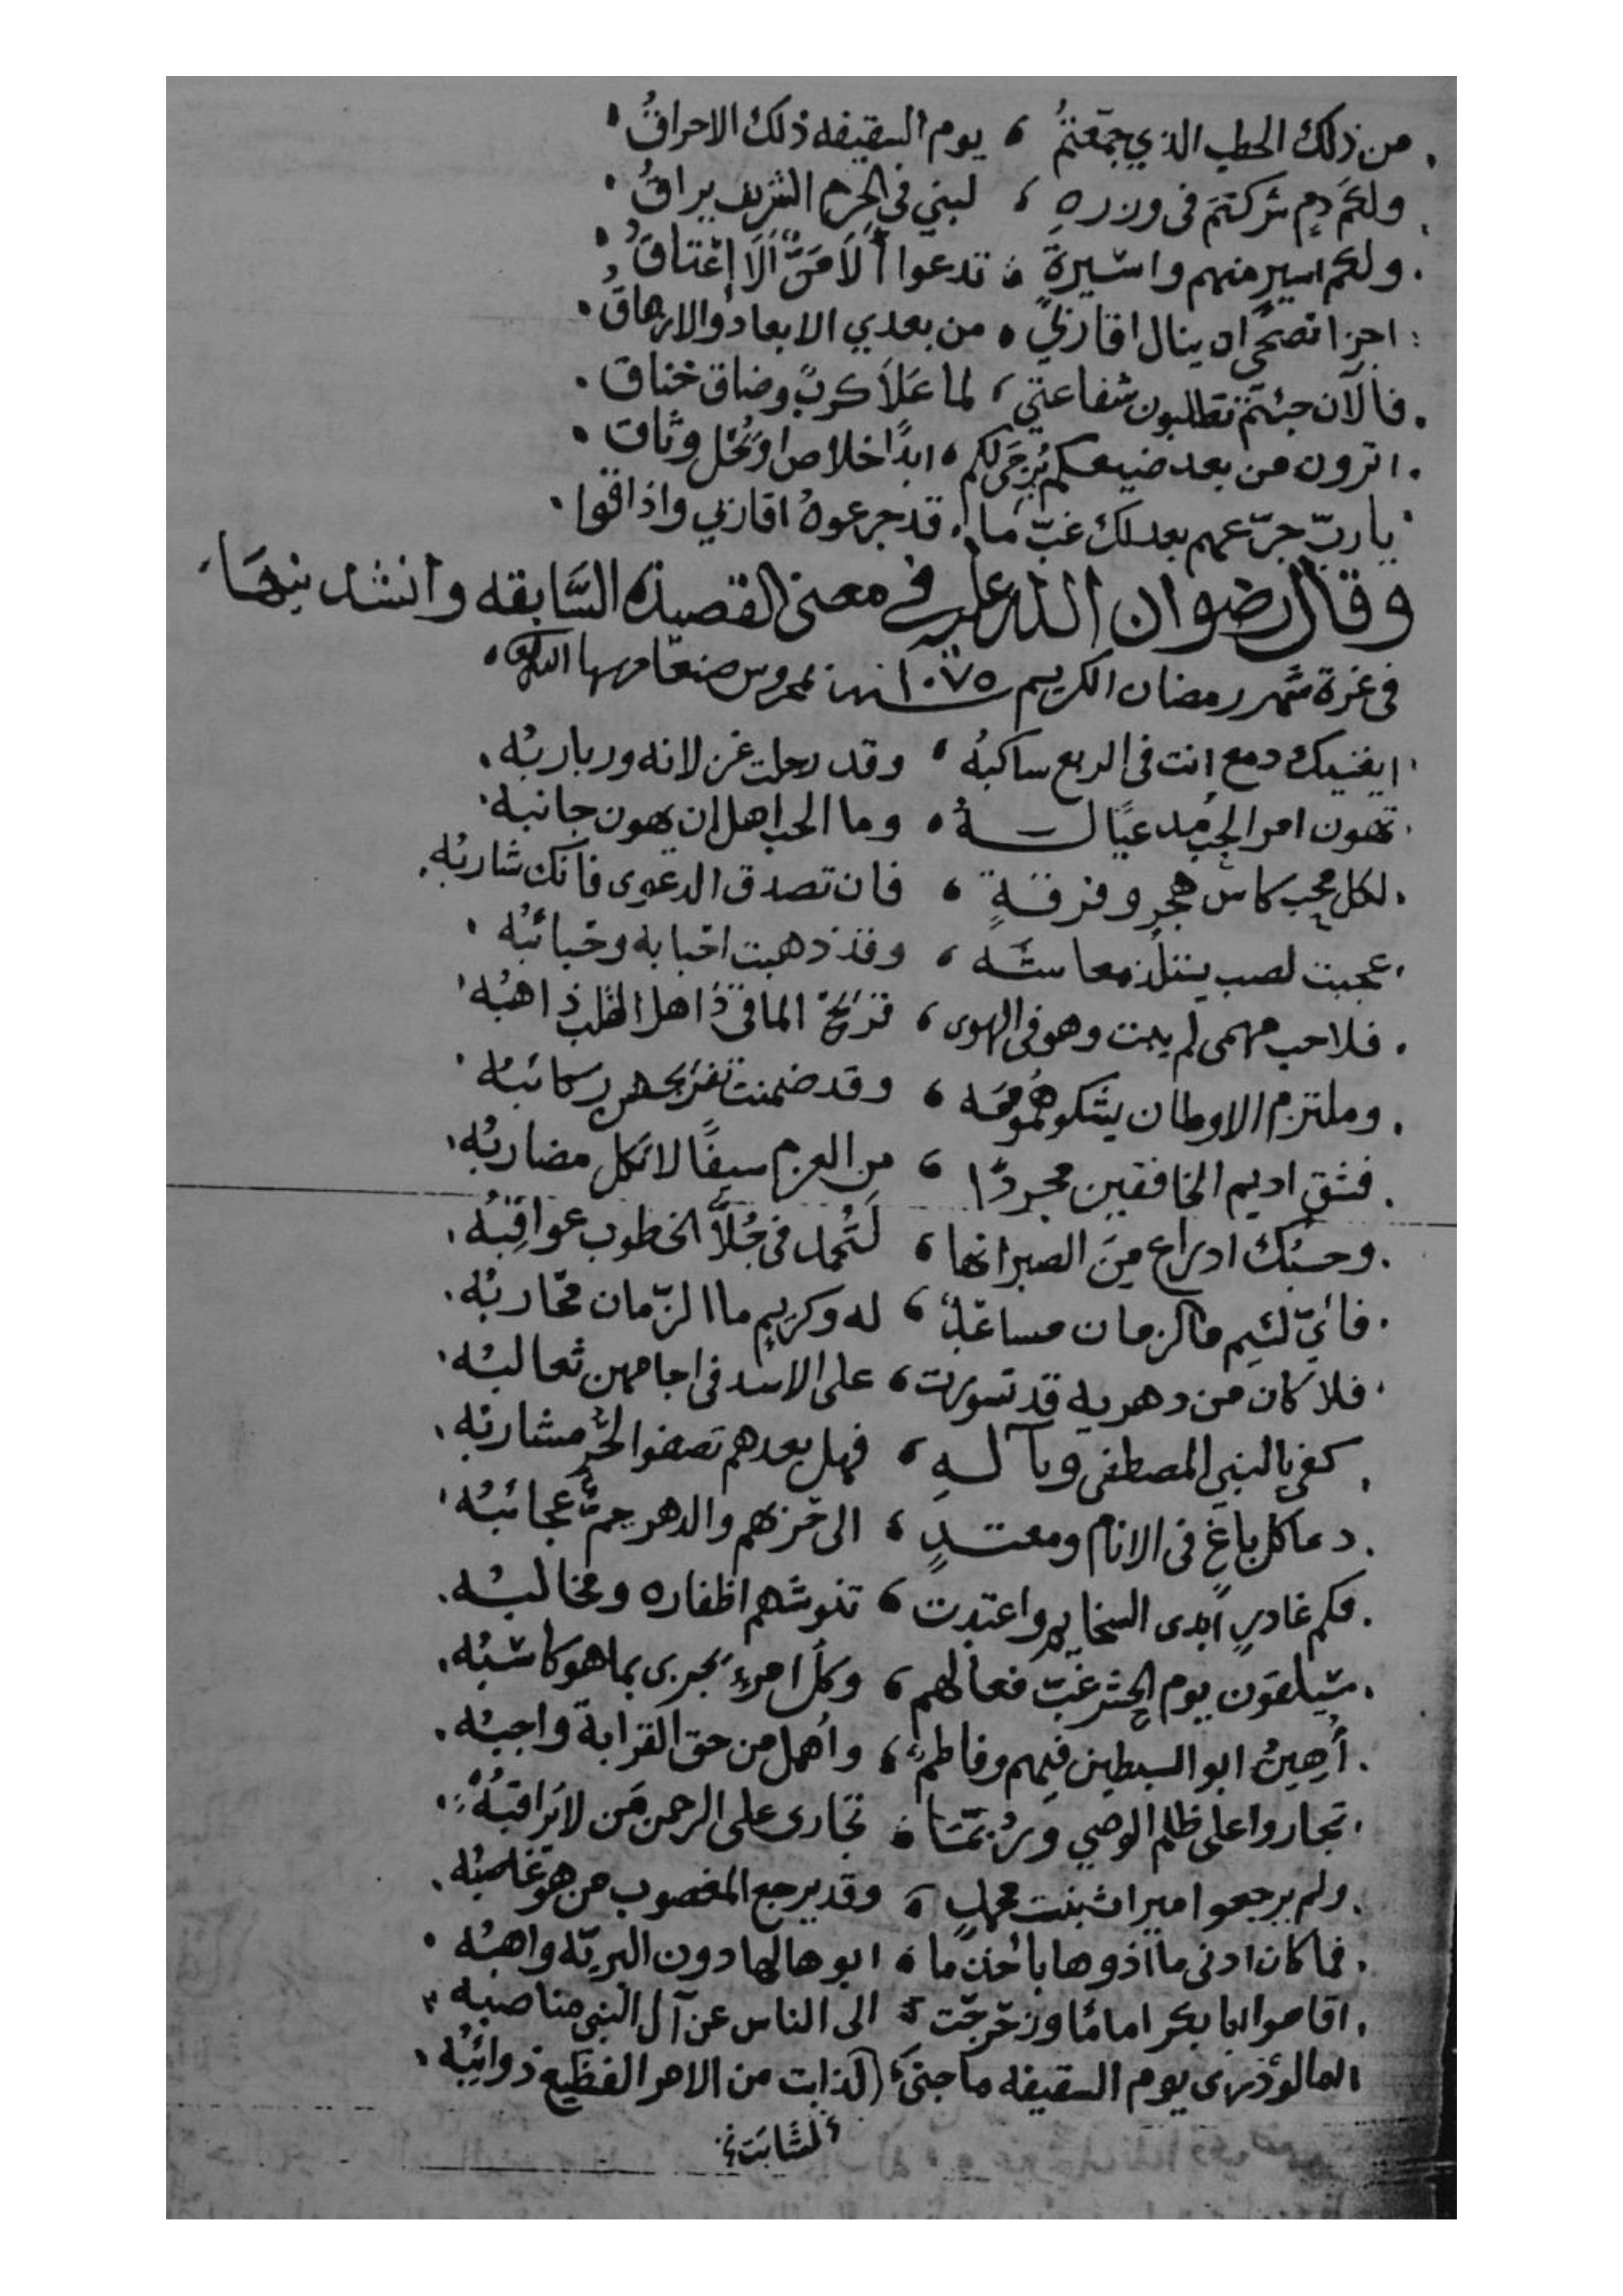 من ذلك الحطب الذي جمّعتمُ ، يوم السقيفه ذلك الاحراقُ
ولكم دمٍ شركتمَ فى وزره ، لبني في الحرم الشريف يراقُ
ولكم اسيرٍ منهم واسيرةٍ ، تدعوا ألَا مَنٌّ ألَا إعْتاقُ
اجزا نصحى ان ينال اقاربي ، من بعدي الابعاد والارهاق
فالآن جئتم تطلبون شفاعتي ، لما عَلَا كربٌ وضاق خناق
اترون من بعد صنيعكم يُرجَى لكم ، ابدًا خلاص او يُحل وثاق
يا ربّ جرّعهم بعدلك غبّ ما ، قد جرعوهُ اقاربي واذاقوا
وقال رضوان الله عليه في معنى القصيده السَّابقه وانشد بنهَا
فى غرة شهر رمضان الكريم سنة ١٠٧٥ بمحروس صنعا
ايفنيك دمع انت فى الربع ساكبُه ، وقد رحلت غزلانه وربارِبُه
تهون امر الحب مدعيًا لـــهُ ، وما الحب اهل ان يهون جانبه
لكل محب كاس هجرٍ وفرقةٍ ، فان تصدق الدعوى فانك شاربُه
عجبت لصب يستلذ معاشه ، وقد ذهبت احبابه وحبائبُه
فلاحب مهمى لم يبت وهو فى الهوى ، قريح المآقي ذاهل القلب ذاهبُه
وملتزم الاوطان يشكو همومَه ، وقد ضمنت تفريجهن ركائبه
فشق اديم الخافقين مجردًا ، من العزم سيفًا لا تكل مضاربُه
وحسبُك ادراع مِنَ الصبر انها ، لَتُحمد فى جُلَّا الخطوب عواقِبُه
فأيّ لئيم ما الزمان مساعدٌ ، له وكريمٍ ما الزّمان محَاربُه
فلا كان من دهر به قد تسورت ، على الاسد فى اجامهن ثعالبُه
كفى بالنبي المصطفى وبآلـــهِ ، فهل بعدهم تصفوا لحُرٍّ مشاربُه
دعا كل باغٍ فى الانام ومعتـــدٍ ، الى حربهم والدهر جمٌّ عجائبُه
فكم غادرٍ ابدى السخايم واعتدت ، تنوشهم اظفاره ومخالبُه
سيلقون يوم الحشر غبّ فعالهم ، وكل امرءٍ يجزى بما هو كاسبُه
أُهِينُ ابو السبطين فيهم وفاطمٌ ، وأهمل من حق القرابة واجبُه
تجاروا على ظلم الوصي وَرُبَّمَا ، تجارى على الرحمن مَن لا يُراقبُهُ
ولم يرجعوا ميراث بنت محمدٍ ، وقد يرجع المغصوب من هو غاصبُه
فما كان ادنى ما آذوها بأخذ ما ، ابوها لها دون البريّه واهبُه
اقاموا ابا بكر امامًا وزحزحت ، الى الناس عن آل النبي مناصبه
المالو ذرى يوم السقيفه ما جنى ، لذابت من الامر الفظيع ذوائبُه
لشابَت